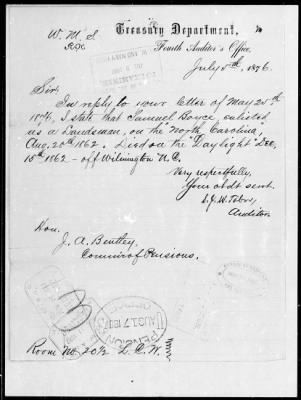 W. M. S.
Treasury Department,
Fourth Auditor's Office,
July 5th, 1876
Sir,
In reply to your letter of May 25th
1876, I state that Samuel Boyce enlisted
as a Landsman, on the "North Carolina,"
Aug. 20th 1862. Died on the "Daylight" Dec.
15th 1862 - off Wilmington N. C.
Very respectfully,
Your obdt servt.
Auditor.
Hon.
J. A. Bentley,
Commr of Pensions.
PENSION
AUG 17 1876
Room No. 20½ L. C. W.